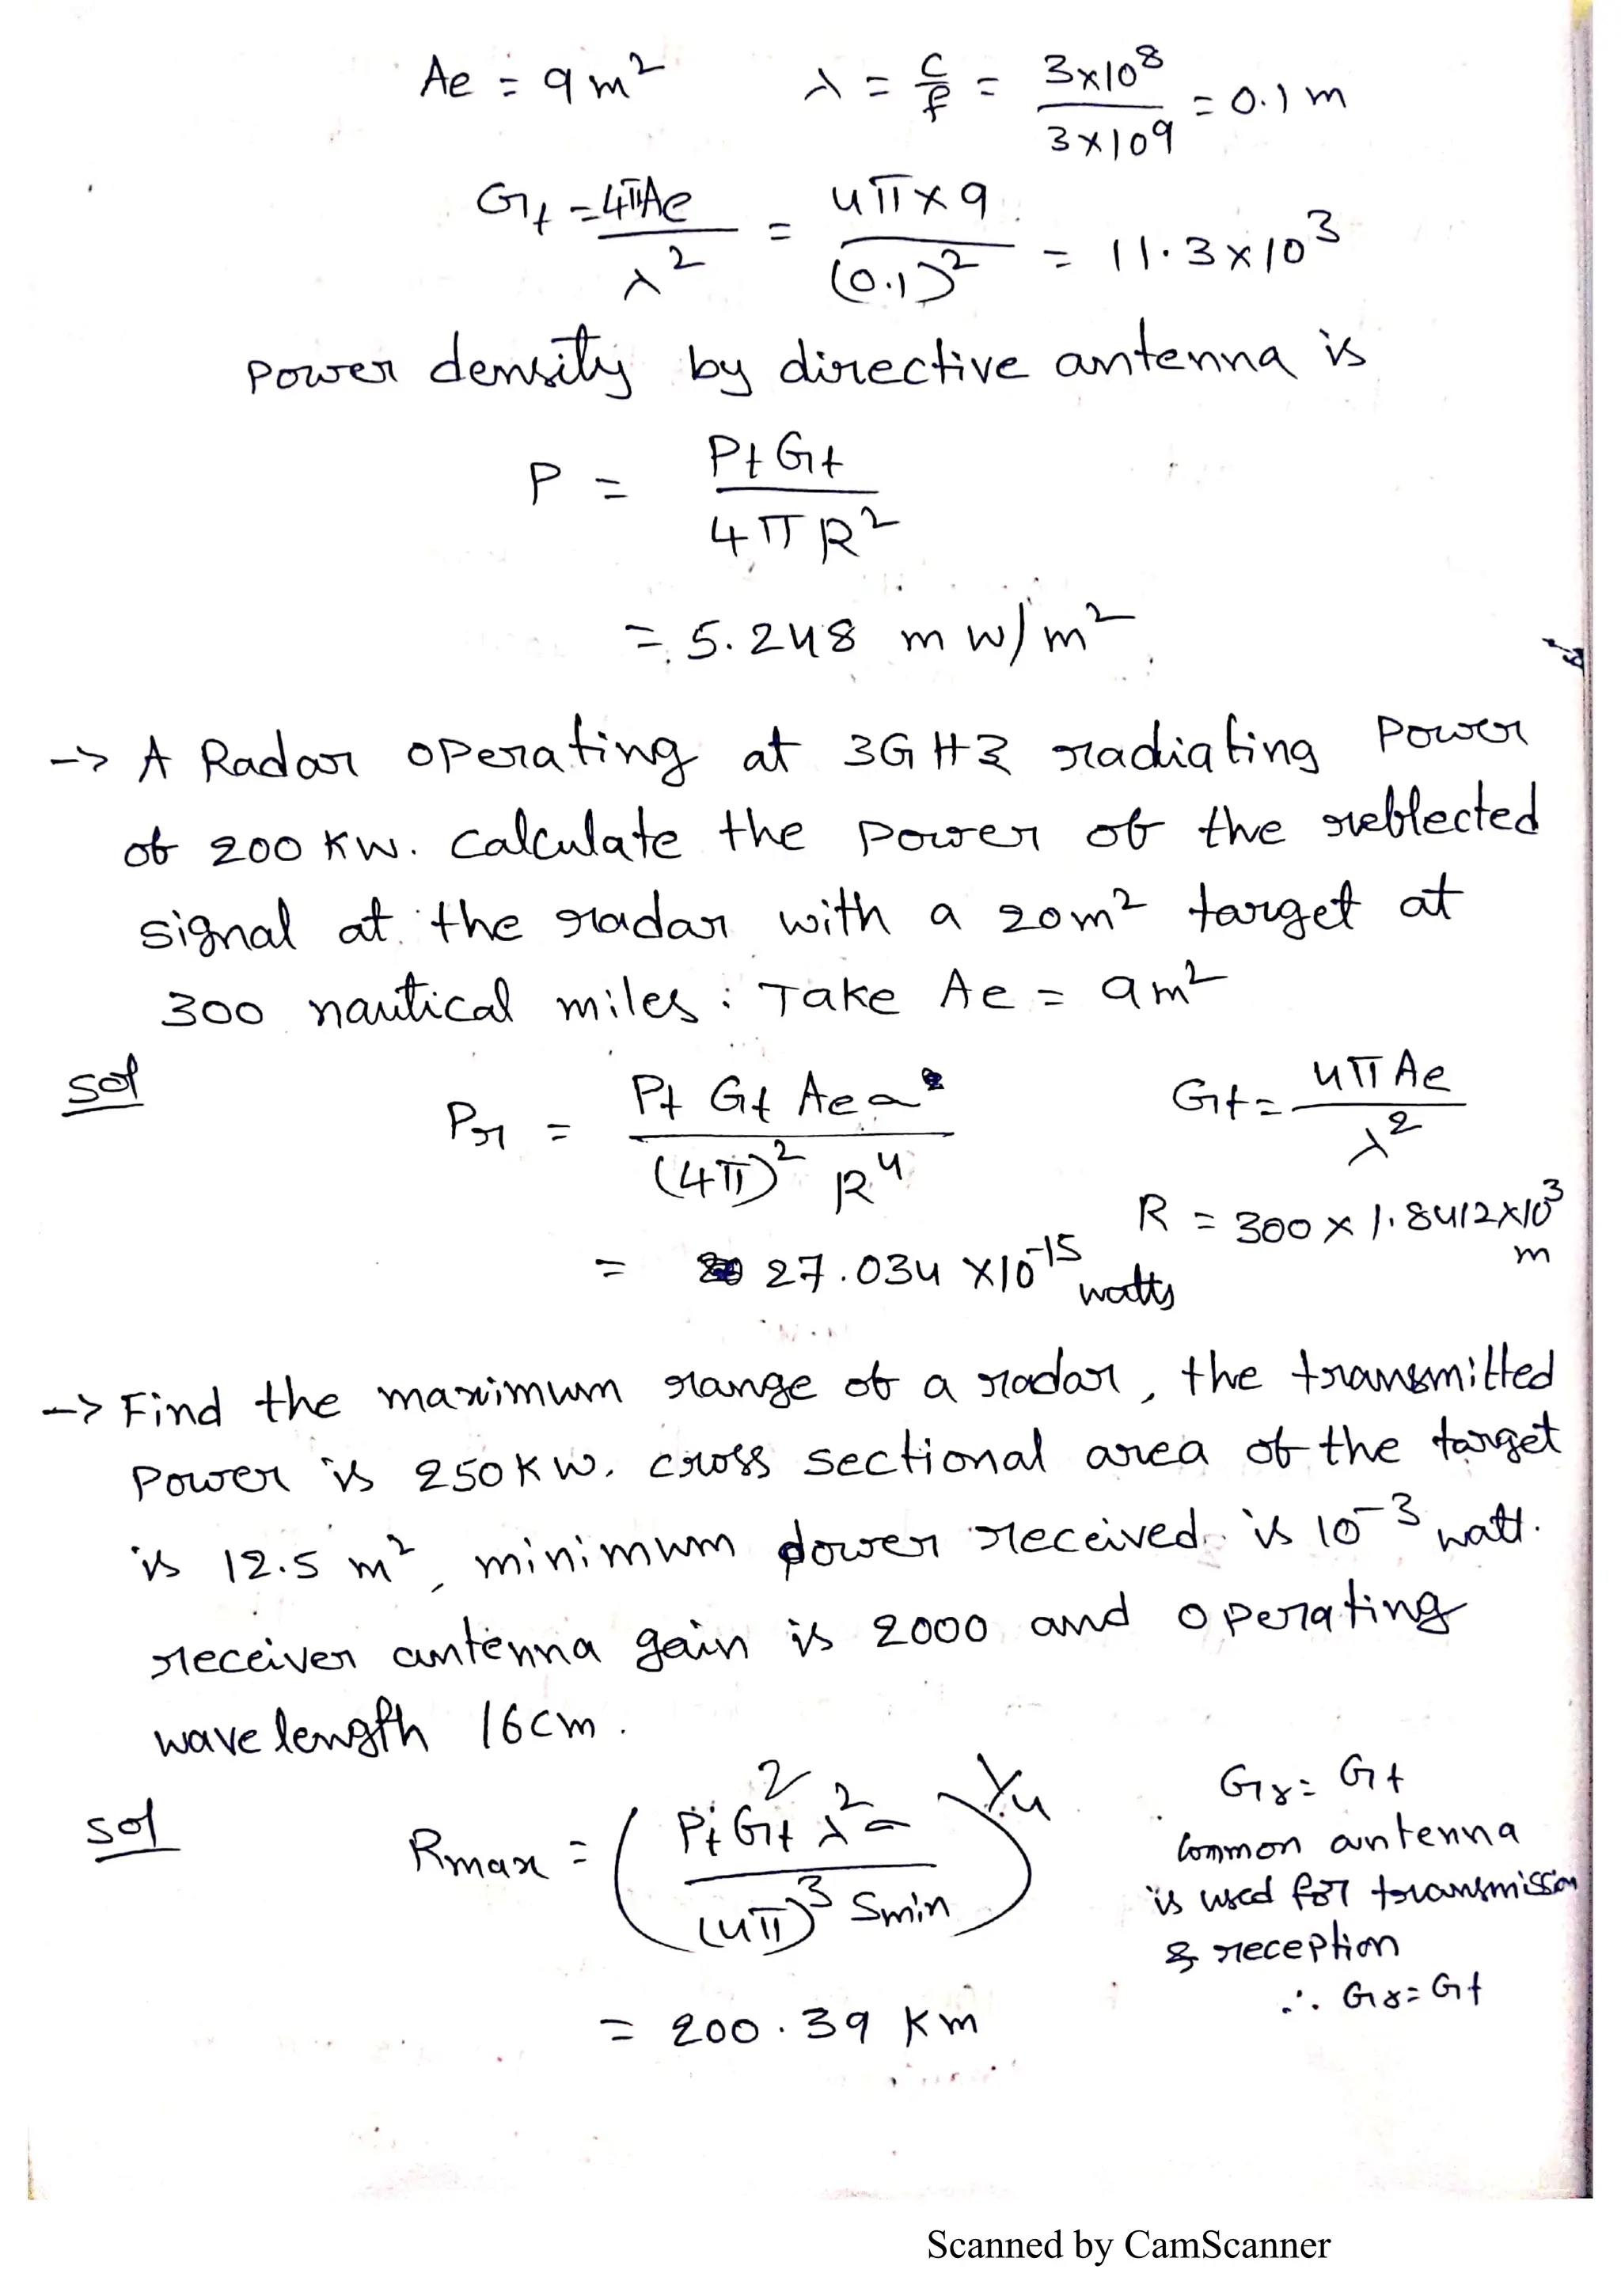 Ae = 9 m² λ = c/f = 3x10⁸/3x10⁹ = 0.1 m
Gt = 4πAe/λ² = 4π x 9/(0.1)² = 11.3 x 10³
power density by directive antenna is
P = Pt Gt/4πR²
= 5.248 m w/m²
-> A Radar operating at 3GHz radiating power
of 200 KW. calculate the power of the reflected
signal at the radar with a 20m² target at
300 nautical miles. Take Ae = 9m²
sol Pr = Pt Gt Ae σ/(4π)² R⁴ Gt = 4π Ae/λ²
R = 300 x 1.8412x10³ m
= 27.034 x10⁻¹⁵ watts
-> Find the maximum range of a radar, the transmitted
power is 250KW. cross sectional area of the target
is 12.5 m², minimum power received is 10⁻³ watt.
receiver antenna gain is 2000 and operating
wavelength 16cm.
sol Rmax = (Pt Gt² λ² σ/(4π)³ Smin)^1/4 Gr = Gt
common antenna
is used for transmission
& reception
∴ Gr = Gt
= 200.39 Km
Scanned by CamScanner